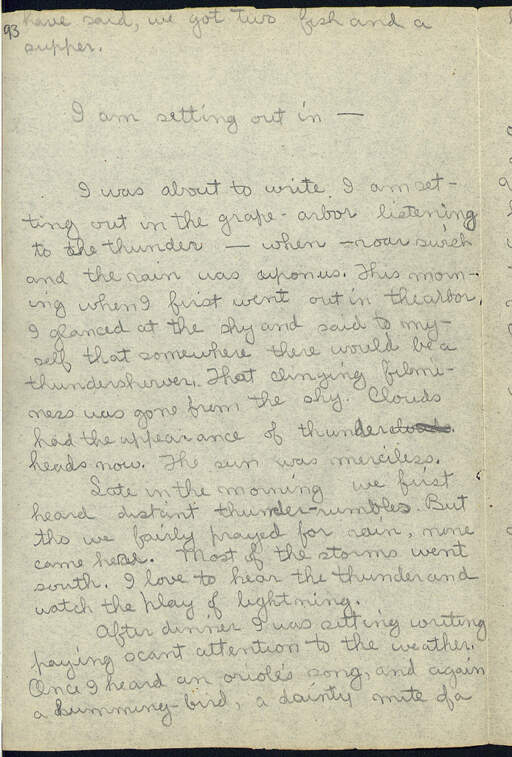 93 have said, we got two fish and a
supper.
I am setting out in —
I was about to write I am set-
ting out in the grape-arbor listening
to the thunder — when – roar swish
and the rain was upon us. This morn-
ing when I first went out in the arbor,
I glanced at the sky and said to my-
self that somewhere there would be a
thundershower. That clinging filmi-
ness was gone from the sky. Clouds
had the appearance of thunder
heads now. The sun was merciless.
Late in the morning we first
heard distant thunder-rumbles. But
tho we fairly prayed for rain, none
came here. Most of the storms went
south. I love to hear the thunder and
watch the play of lightning.
After dinner I was sitting writing
paying scant attention to the weather.
Once I heard an oriole's song, and again
a humming-bird, a dainty mite of a